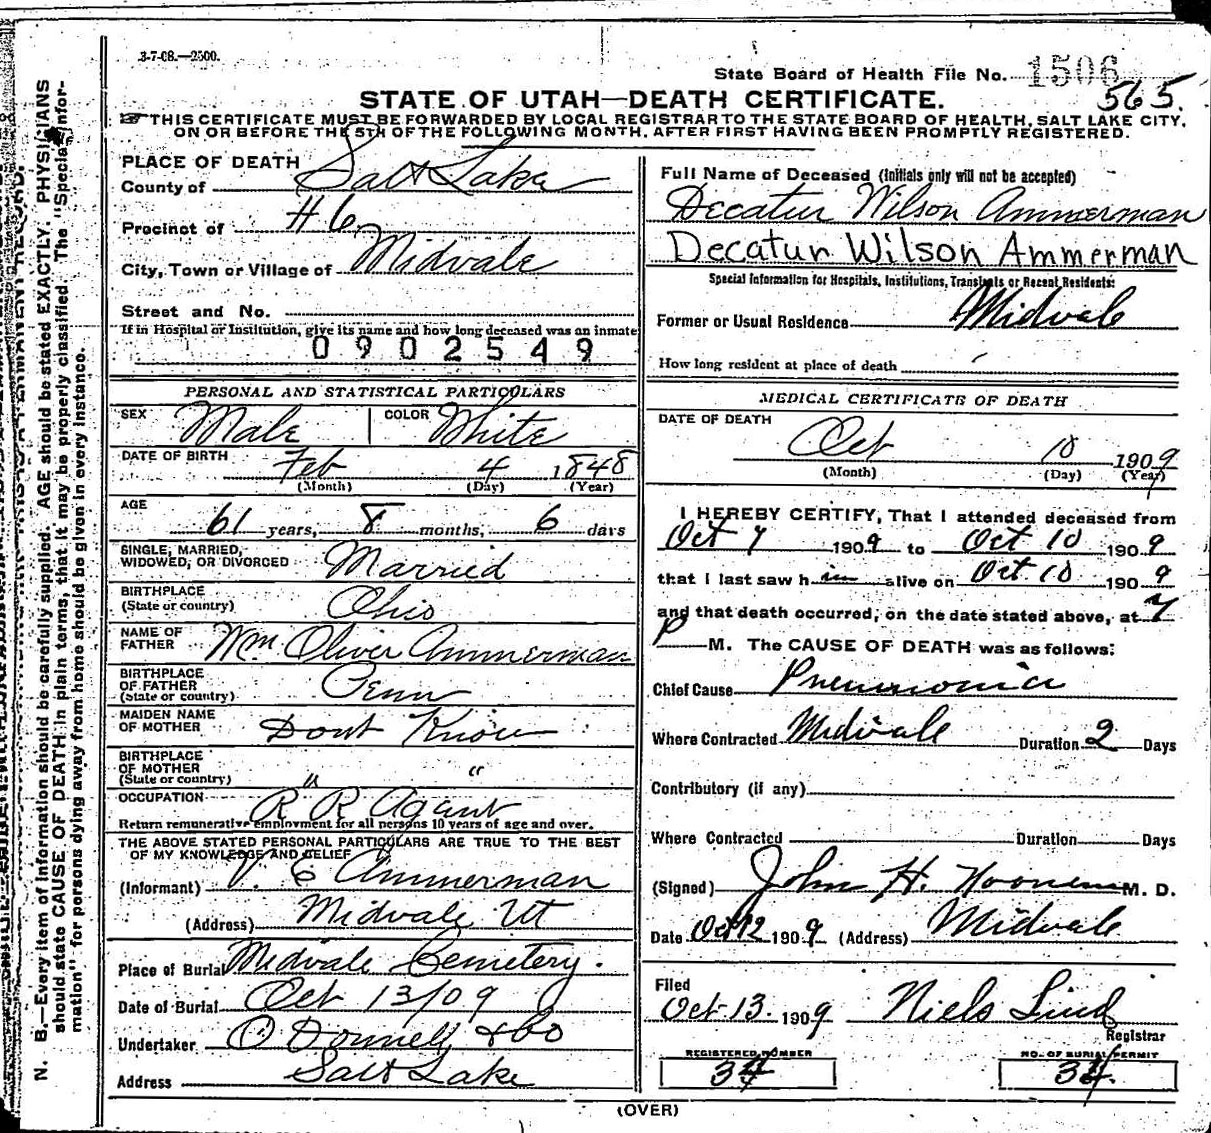 3-7-08.—2500.
State Board of Health File No. 1506
565.
STATE OF UTAH—DEATH CERTIFICATE.
THIS CERTIFICATE MUST BE FORWARDED BY LOCAL REGISTRAR TO THE STATE BOARD OF HEALTH, SALT LAKE CITY,
ON OR BEFORE THE 5TH OF THE FOLLOWING MONTH, AFTER FIRST HAVING BEEN PROMPTLY REGISTERED.
PLACE OF DEATH
County of Salt Lake
Precinct of # 6
City, Town or Village of Midvale
Street and No.
If in Hospital or Institution, give its name and how long deceased was an inmate
0902549
PERSONAL AND STATISTICAL PARTICULARS
SEX Male COLOR White
DATE OF BIRTH Feb 4 1848
(Month) (Day) (Year)
AGE 61 years, 8 months, 6 days
SINGLE, MARRIED,
WIDOWED, OR DIVORCED Married
BIRTHPLACE
(State or country) Ohio
NAME OF
FATHER Wm Oliver Ammerman
BIRTHPLACE
OF FATHER
(State or country) Penn
MAIDEN NAME
OF MOTHER Dont Know
BIRTHPLACE
OF MOTHER
(State or country) " "
OCCUPATION R R Agant
Return remunerative employment for all persons 10 years of age and over.
THE ABOVE STATED PERSONAL PARTICULARS ARE TRUE TO THE BEST
OF MY KNOWLEDGE AND BELIEF
(Informant) V. E Ammerman
(Address) Midvale Ut
Place of Burial Midvale Cemetery.
Date of Burial Oct 13/09
Undertaker O Donnell & Co
Address Salt Lake
Full Name of Deceased (Initials only will not be accepted)
Decatur Wilson Ammerman
Decatur Wilson Ammerman
Special Information for Hospitals, Institutions, Transients or Recent Residents:
Former or Usual Residence Midvale
How long resident at place of death
MEDICAL CERTIFICATE OF DEATH
DATE OF DEATH
Oct 10 1909
(Month) (Day) (Year)
I HEREBY CERTIFY, That I attended deceased from
Oct 7 1909 to Oct 10 1909
that I last saw him alive on Oct. 10 1909
and that death occurred, on the date stated above, at 7
P M. The CAUSE OF DEATH was as follows:
Chief Cause Pneumonia
Where Contracted Midvale Duration 2 Days
Contributory (if any)
Where Contracted Duration Days
(Signed) John H. M. D.
Date Oct 12 1909 (Address) Midvale
Filed
Oct-13. 1909 Niels Lind
Registrar
REGISTERED NUMBER
NO. OF BURIAL PERMIT
(OVER)
N. B.—Every item of information should be carefully supplied. AGE should be stated EXACTLY. PHYSICIANS
should state CAUSE OF DEATH in plain terms, that it may be properly classified. The "Special Infor-
mation" for persons dying away from home should be given in every instance.